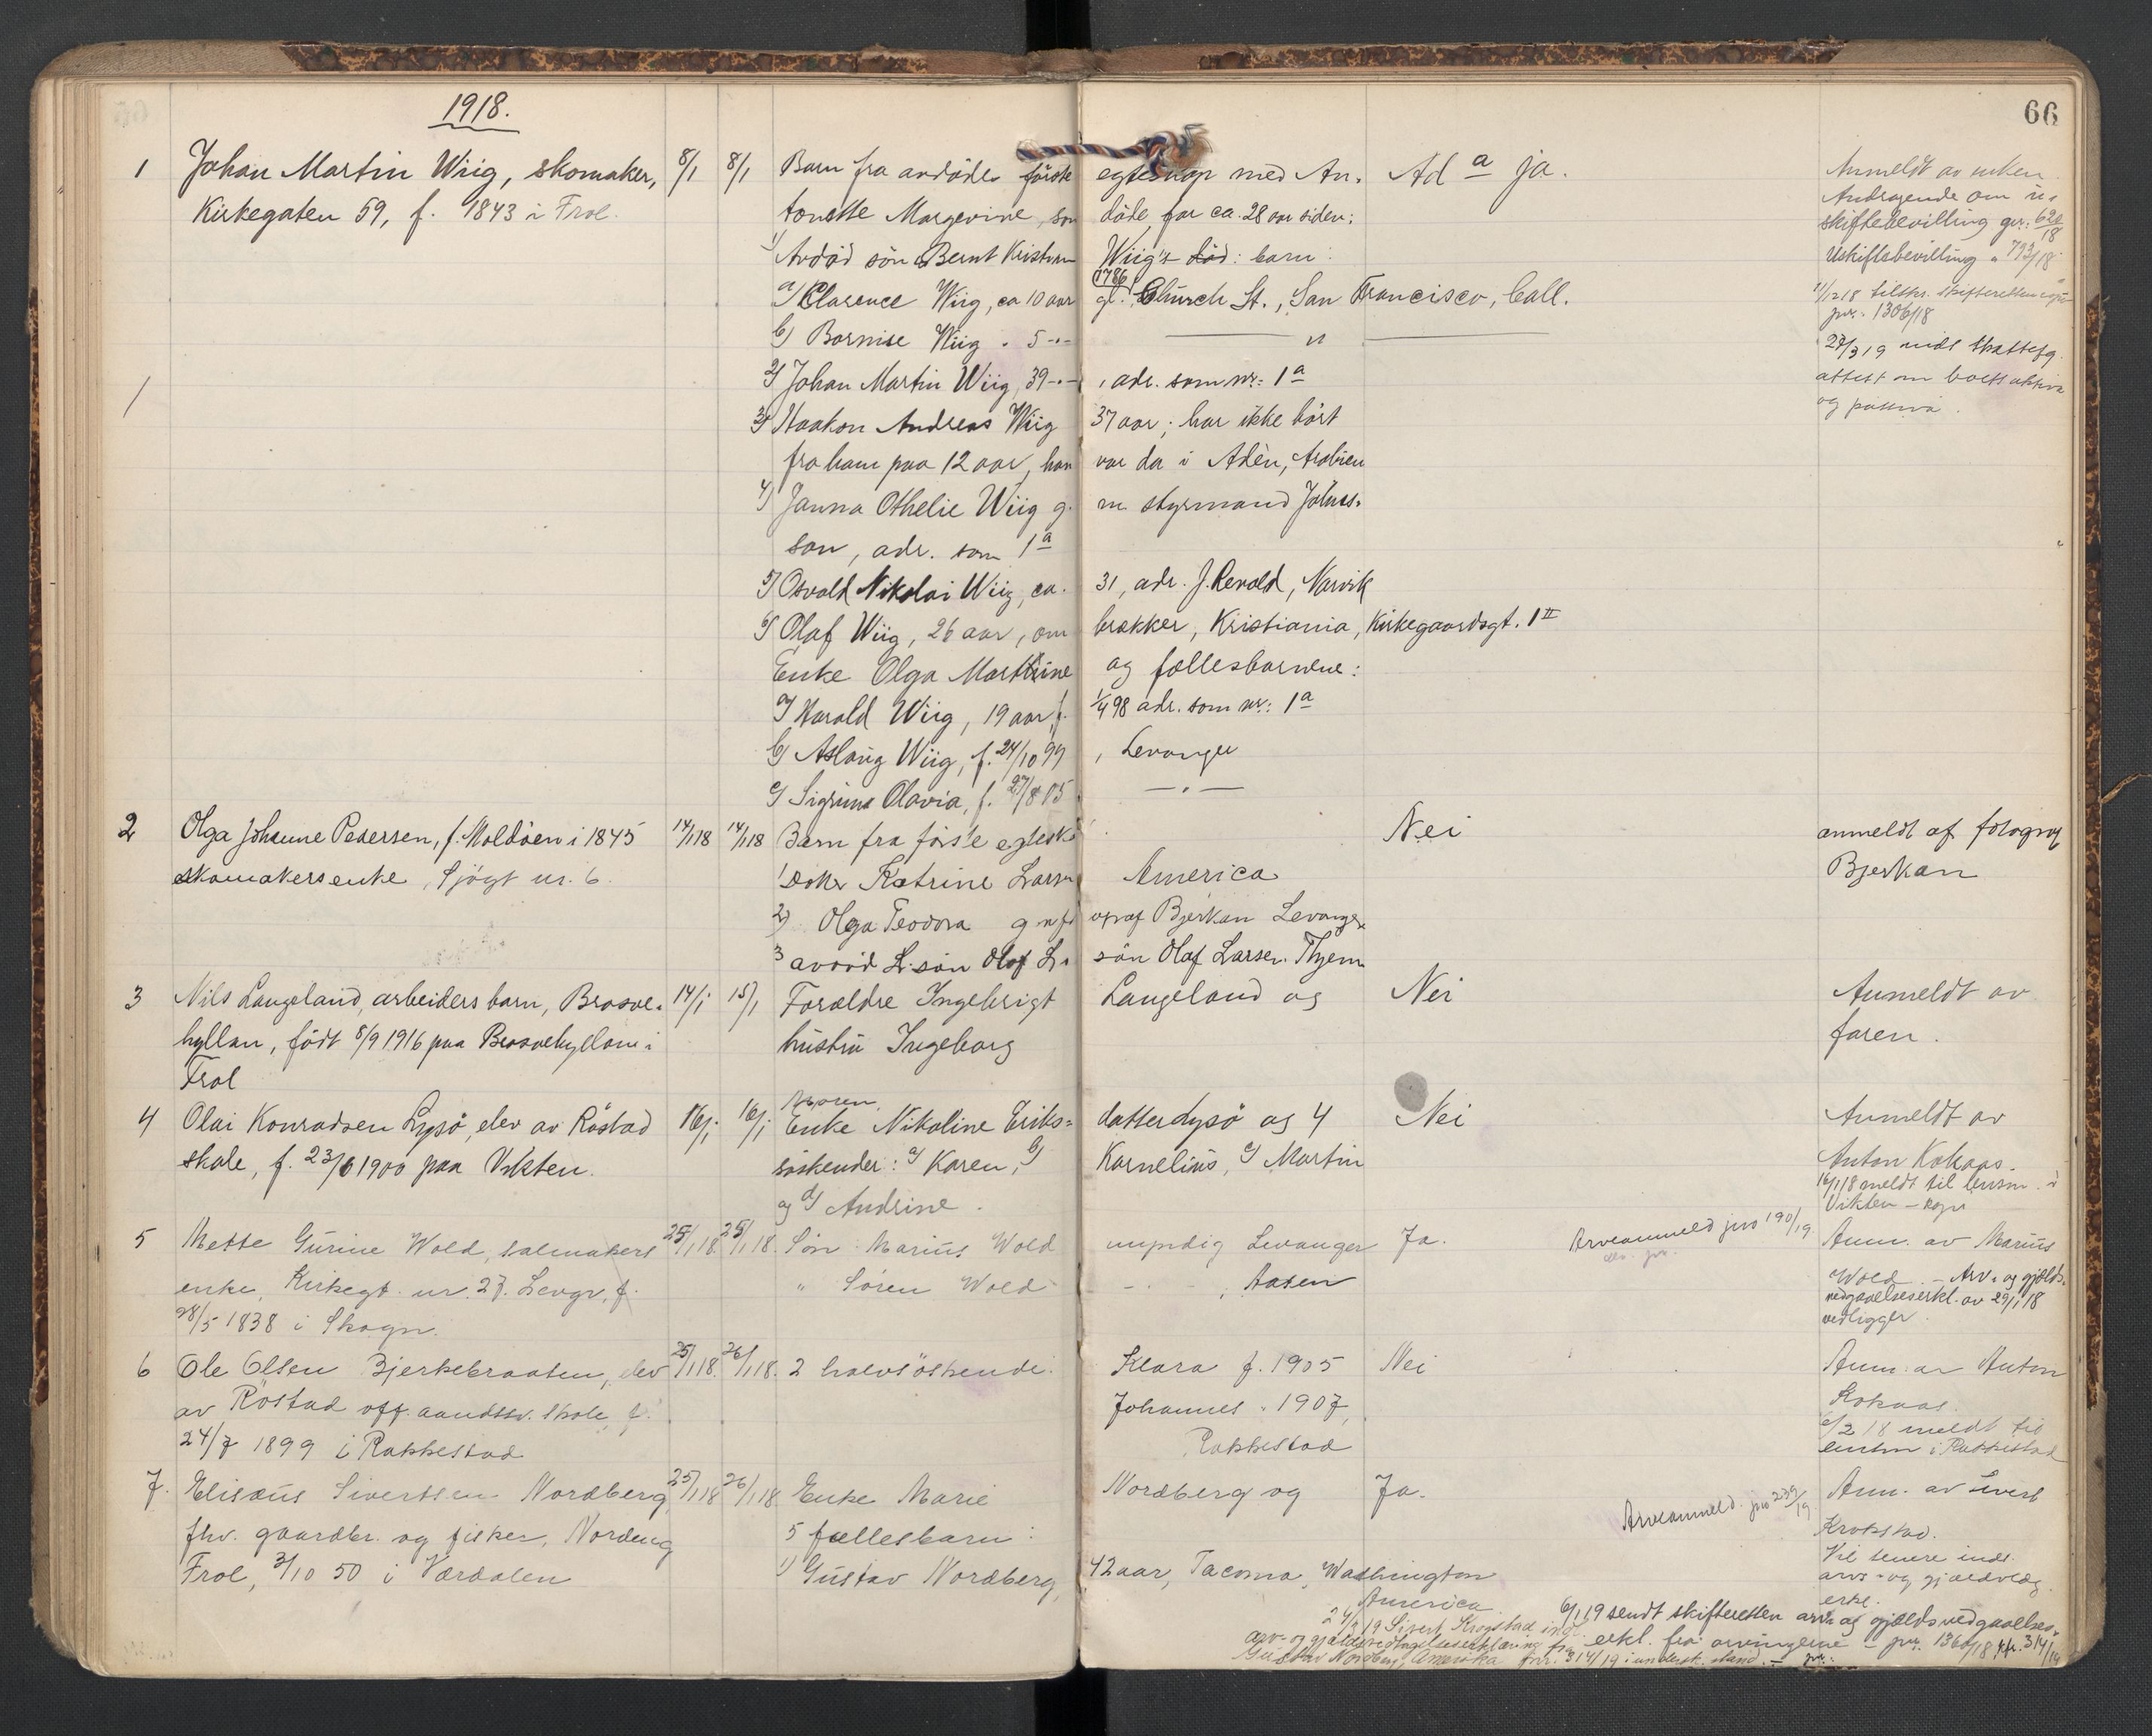 66
1918.
1 Johan Martin Wiig, skomaker, 8/1 8/1 Barn fra avdødes første egteskap med An- Ad a ja. Anmeldt av enken
Kirkegaten 59, f. 1843 i Frol. tonette Margevine, som døde for ca. 28 aar siden: Andragende om u-
skiftebevilling
1) Avdød søn Bernt Kristian Wiig's død: barn: Uskiftebevilling " 793/18
a) Clarence Wiig, ca 10 aar gl. 1786 Church St., San Francisco, Call.
jnr. 1306/18
b) Bornise Wiig " 5 -"- — " —
27/3 19
2) Johan Martin Wiig, 39 -"- , adr. som nr: 1a attest om boets aktiva
og passiva.
3) Haakon Andreas Wiig 37 aar; har ikke hørt
fra ham paa 12 aar, han var da i Adèn, Arabien
4) Janna Othelie Wiig g. m. styrmand Johns-
son, adr. som 1a
5) Osvald Nikolai Wiig, ca. 31, adr. J. Revold, Narvik
6) Olaf Wiig, 26 aar, om brækker, Kristiania, Kirkegaardsgt. 1 II
Enke Olga Martine og fællesbarnene:
a) Harald Wiig, 19 aar, f. 1/4 98 adr. som nr: 1a
b) Aslaug Wiig, f. 24/10 99, Levanger
c) Sigrun Olavia, f. 27/8 05 — " —
2 Olga Johanne Pedersen, f. Moldöen i 1845 14/1 18 14/1 18 Barn fra første egtesk. Nei anmeldt af fotograf
skomakersenke, Sjögt nr. 6. 1 Katrine Larsen America Bjerkan
2) Olga Teodora g m fotograf Bjerkan Levanger
3 avdöd søn Olaf søn Olaf Larsen
3 Nils Langeland, arbeiders barn, Brosve- 14/1 15/1 Forældre Ingebrigt Langeland og Nei Anmeldt av
hyllan, født 8/9 1916 paa Brosvehyllan i hustru Ingeborg faren.
Frol
4 Olai Konradsen Lysø, elev av Röstad 16/1 16/1 Moren, Enke Nikoline Eriks- datter Lysø og 4 Nei Anmeldt av
skole, f. 23/6 1900 paa Vikten. søskender: a) Karen, b) Kornelius, c) Martin Anton Kokaas.
og d) Andrine. 16/1 18 meldt til lensm. i
Vikten
5 Mette Gurine Wold, salmakers 25/1 18. 25/1 18. Søn Marius Wold myndig Levanger Ja. Arveanmeld jnr 190/19 Anm. av Marius
enke, Kirkegt. nr. 27. Levgr., f. " Søren Wold - " - , Aasen Wold. - Arv- og gjælds-
28/5 1838 i Skogn. vedgaaelseserkl. av 29/1 18
vedligger
6 Ole Olsen Bjerkebraaten, elev 25/1 18. 26/1 18. 2 halvsøskende: Klara f. 1905 Nei Anm. av Anton
av Röstad off. aandssv. skole, f. Johannes " 1907, Kokaas.
24/7 1899 i Rakkestad Rakkestad 6/2 18 meldt til
lensm i Rakkestad
7. Elisæus Sivertsen Nordberg, 25/1 18 26/1 18 Enke Marie Nordberg og Ja. Arveanmeld. jnr 239/19 Anm. av Sivert
fhv. gaardbr. og fisker, Nordeng 5 fællesbarn: Krokstad.
Frol, 3/10 50 i Værdalen 1) Gustav Nordberg, 42 aar, Tacoma, Washington Vil senere inds.
America arv- og gjældvedg.
erkl.
6/1 19 sendt skifteretten arv og gjældsvedgaaelses-
erkl. fra arvingerne - jnr. 1360/18 jfr. 314/19
24/3 19 Sivert Krogstad
arv- og gjældsvedtagelseserklæring fra
Gustav Nordberg, Amerika jnr. 314/19